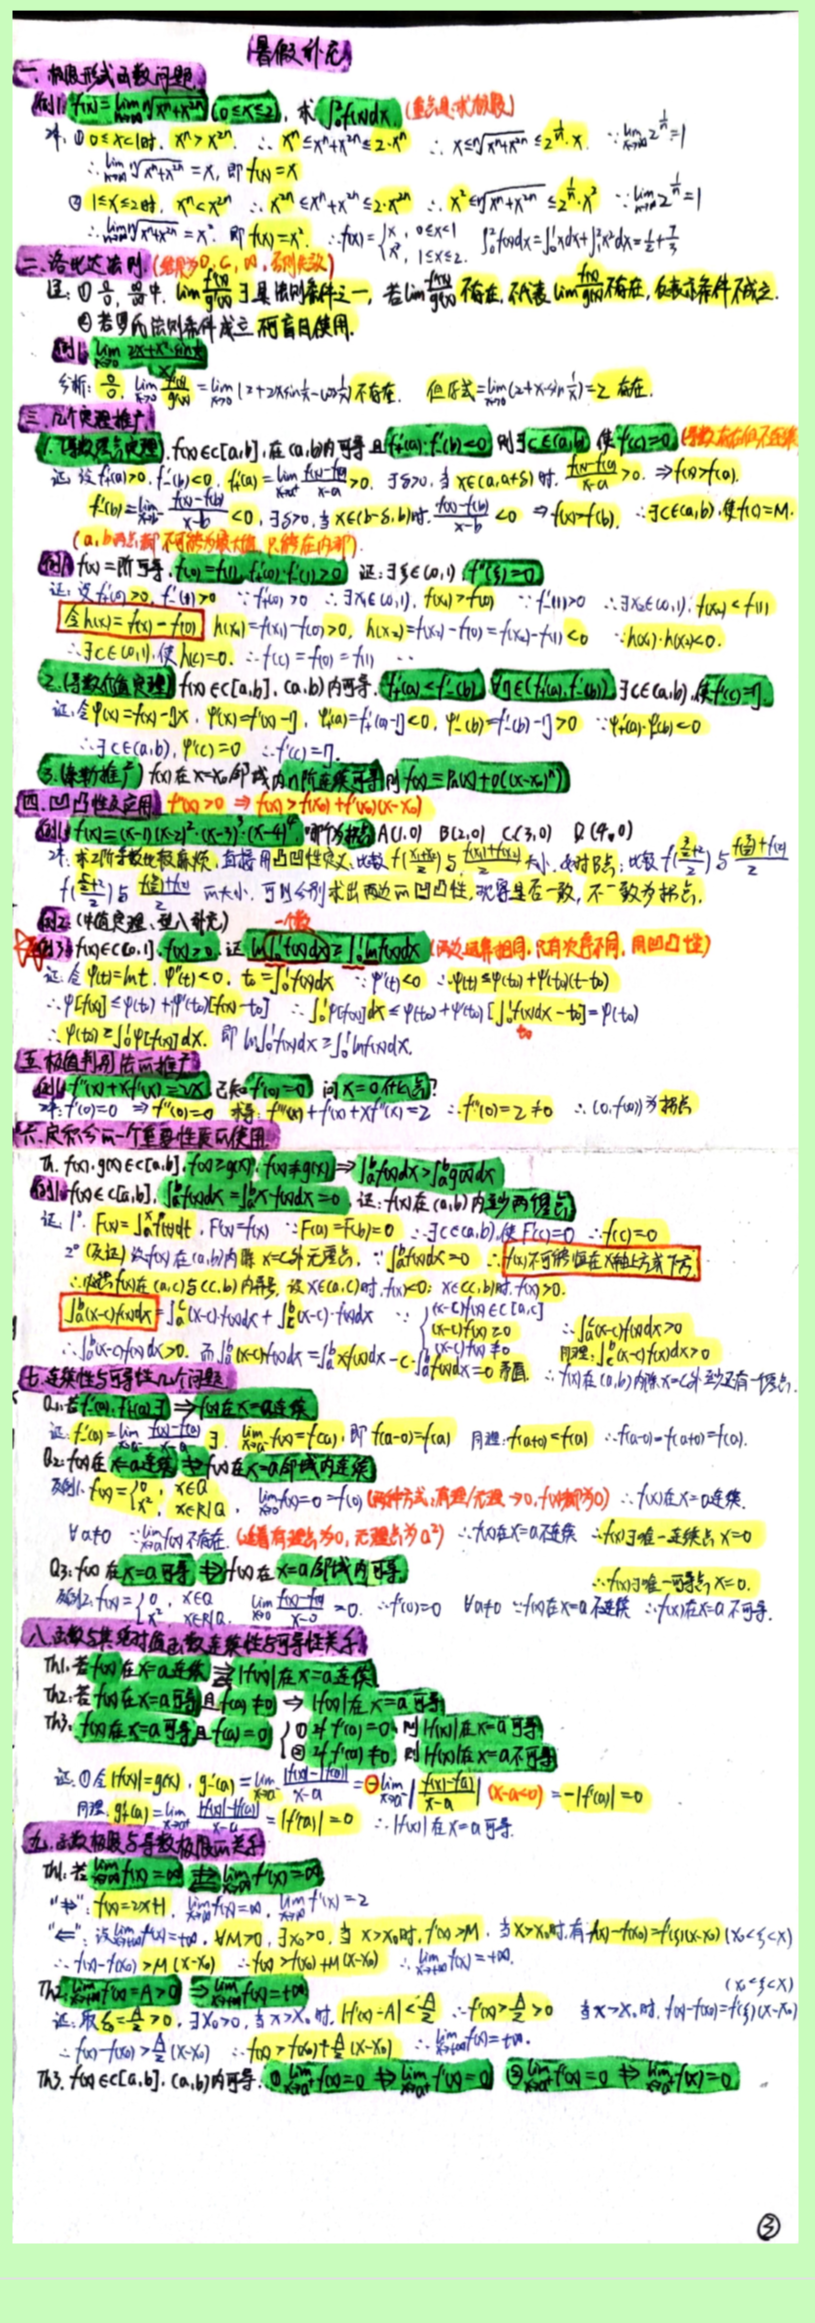 暑假补充
一、极限形式函数问题
例1: f(x)=lim ⁿ√(xⁿ+x²ⁿ) (0≤x≤2), 求∫₀²f(x)dx. (重点是求极限)
① 0≤x<1时, xⁿ>x²ⁿ ∴ xⁿ≤xⁿ+x²ⁿ≤2·xⁿ ∴ x≤ⁿ√(xⁿ+x²ⁿ)≤2^(1/n)·x. ∵ lim 2^(1/n)=1
∴ lim ⁿ√(xⁿ+x²ⁿ)=x, 即 f(x)=x
② 1≤x≤2时, xⁿ<x²ⁿ ∴ x²ⁿ≤xⁿ+x²ⁿ≤2·x²ⁿ ∴ x²≤ⁿ√(xⁿ+x²ⁿ)≤2^(1/n)·x² ∵ lim 2^(1/n)=1
∴ lim ⁿ√(xⁿ+x²ⁿ)=x². 即 f(x)=x². ∴ f(x)={x, 0≤x<1; x², 1≤x≤2. ∫₀²f(x)dx=∫₀¹xdx+∫₁²x²dx=1/2+7/3
二、洛比达法则. (结果为0, C, ∞, 否则失效)
注: ① 0/0, ∞/∞中, lim f'(x)/g'(x) ∃是法则条件之一, 若lim f'(x)/g'(x)不存在, 不代表lim f(x)/g(x)不存在, 仅表示条件不成立.
② 若罗氏法则条件成立 不可盲目使用.
例1: lim(x→0) (2x+x²·sin 1/x)/x
分析: 0/0, lim f'(x)/g'(x)=lim(x→0)(2+2x sin 1/x-cos 1/x)不存在. 但原式=lim(x→0)(2+x·sin 1/x)=2 存在.
三、几个定理推广
1.(导数零点定理). f(x)∈C[a,b], 在(a,b)内可导 且f'₊(a)·f'₋(b)<0 则∃c∈(a,b) 使f'(c)=0
证: 设f'₊(a)>0, f'₋(b)<0, f'₊(a)=lim(x→a⁺) (f(x)-f(a))/(x-a)>0. ∃δ>0, 当x∈(a,a+δ)时, (f(x)-f(a))/(x-a)>0. ⇒f(x)>f(a).
f'₋(b)=lim(x→b⁻) (f(x)-f(b))/(x-b)<0, ∃δ>0, 当x∈(b-δ,b)时, (f(x)-f(b))/(x-b)<0 ⇒f(x)>f(b). ∴∃c∈(a,b), 使f(c)=M.
(a,b两点都不可能为最大值, 只能在内部).
例1: f(x)二阶可导, f(0)=f(1), f'₊(0)·f'₋(1)>0 证:∃ξ∈(0,1) f''(ξ)=0
证: 设f'₊(0)>0, f'₋(1)>0 ∵f'₊(0)>0 ∴∃x₁∈(0,1), f(x₁)>f(0) ∵f'₋(1)>0 ∴∃x₂∈(0,1), f(x₂)<f(1)
令h(x)=f(x)-f(0) h(x₁)=f(x₁)-f(0)>0, h(x₂)=f(x₂)-f(0)=f(x₂)-f(1)<0 ∵h(x₁)·h(x₂)<0.
∴∃c∈(0,1), 使h(c)=0. ∴f(c)=f(0)=f(1) …
2.(导数介值定理) f(x)∈C[a,b], (a,b)内可导. f'₊(a)<f'₋(b), ∀η∈(f'₊(a),f'₋(b)) ∃c∈(a,b), 使f'(c)=η.
证: 令φ(x)=f(x)-ηx, φ'(x)=f'(x)-η, φ'₊(a)=f'₊(a)-η<0, φ'₋(b)=f'₋(b)-η>0 ∵φ'₊(a)·φ'₋(b)<0
∴∃c∈(a,b), φ'(c)=0 ∴f'(c)=η.
3.(泰勒推广) f(x)在x=x₀邻域内n阶连续可导 则f(x)=Pₙ(x)+o((x-x₀)ⁿ)
四、凹凸性及应用 f''(x)>0 ⇒ f(x)>f(x₀)+f'(x₀)(x-x₀)
例1: f(x)=(x-1)(x-2)²·(x-3)³·(x-4)⁴ 哪个为拐点 A(1,0) B(2,0) C(3,0) D(4,0)
求2阶导数比较麻烦, 直接用凹凸性定义: 比较f((x₁+x₂)/2)与(f(x₁)+f(x₂))/2大小.
而大小, 可以分别求出两边的凹凸性, 观察是否一致, 不一致为拐点.
例2: (中值定理, 型八补充) 一个数
例3: f(x)∈C[0,1], f(x)>0. 证 ln∫₀¹f(x)dx≥∫₀¹lnf(x)dx (两边运算相同, 只有次序不同, 用凹凸性)
证: 令φ(t)=lnt, φ''(t)<0, t₀=∫₀¹f(x)dx ∵φ''(t)<0 ∴φ(t)≤φ(t₀)+φ'(t₀)(t-t₀)
∴φ[f(x)]≤φ(t₀)+φ'(t₀)[f(x)-t₀] ∴∫₀¹φ[f(x)]dx≤φ(t₀)+φ'(t₀)[∫₀¹f(x)dx-t₀]=φ(t₀)
t₀
∴φ(t₀)≥∫₀¹φ[f(x)]dx. 即 ln∫₀¹f(x)dx≥∫₀¹lnf(x)dx.
五、极值判别法的推广
例1: f''(x)+xf'(x)=2x 已知f'(0)=0 问x=0什么点?
f'(0)=0 ⇒f''(0)=0 求导: f'''(x)+f'(x)+xf''(x)=2 ∴f'''(0)=2≠0 ∴(0,f(0))为拐点
六、定积分的一个重要性质的使用
Th. f(x)·g(x)∈C[a,b], f(x)≥g(x), f(x)≢g(x) ⇒∫ₐᵇf(x)dx>∫ₐᵇg(x)dx
例1: f(x)∈C[a,b], ∫ₐᵇf(x)dx=∫ₐᵇx·f(x)dx=0 证: f(x)在(a,b)内至少两个零点
证: 1° F(x)=∫ₐˣf(t)dt, F'(x)=f(x) ∵F(a)=F(b)=0 ∴∃c∈(a,b), 使F'(c)=0 ∴f(c)=0
2° (反证) 设f(x)在(a,b)内除x=c外无零点, ∵∫ₐᵇf(x)dx=0 ∴f(x)不可能恒在x轴上方或下方.
∴f(x)在(a,c)与(c,b)内异号, 设x∈(a,c)时, f(x)<0; x∈(c,b)时, f(x)>0.
∫ₐᵇ(x-c)f(x)dx=∫ₐᶜ(x-c)·f(x)dx+∫c ᵇ(x-c)·f(x)dx ∵ {(x-c)f(x)∈C[a,c]; (x-c)f(x)≥0; (x-c)f(x)≢0 ∴∫ₐᶜ(x-c)f(x)dx>0 同理: ∫c ᵇ(x-c)f(x)dx>0
∴∫ₐᵇ(x-c)f(x)dx>0. 而∫ₐᵇ(x-c)f(x)dx=∫ₐᵇxf(x)dx-c·∫ₐᵇf(x)dx=0 矛盾. ∴f(x)在(a,b)内除x=c外至少还有一个零点.
七、连续性与可导性几个问题
Q1: 若f'₋(a), f'₊(a)∃ ⇒f(x)在x=a连续
证: f'₋(a)=lim(x→a⁻) (f(x)-f(a))/(x-a) ∃. lim(x→a⁻)f(x)=f(a), 即 f(a-0)=f(a) 同理: f(a+0)=f(a) ∴f(a-0)=f(a+0)=f(a).
Q2: f(x)在x=a连续 ⇏f(x)在x=a邻域内连续
反例1. f(x)={0, x∈Q; x², x∈R\Q, lim(x→0)f(x)=0=f(0) (两种方式: 有理/无理→0, f(x)都为0) ∴f(x)在x=0连续.
∀a≠0 ∵lim(x→a)f(x)不存在. (趋着有理点为0, 无理点为a²) ∴f(x)在x=a不连续 ∴f(x)∃唯一连续点x=0
Q3: f(x)在x=a可导 ⇏f(x)在x=a邻域内可导 ∴f(x)∃唯一可导点x=0.
反例2: f(x)={0, x∈Q; x², x∈R\Q, lim(x→0) (f(x)-f(0))/(x-0)=0. ∴f'(0)=0 ∀a≠0 ∵f(x)在x=a不连续 ∴f(x)在x=a不可导.
八、函数与其绝对值函数连续性与可导性关系
Th1: 若f(x)在x=a连续 ⇒ |f(x)|在x=a连续
Th2: 若f(x)在x=a可导且f(a)≠0 ⇒ |f(x)|在x=a可导
Th3: f(x)在x=a可导且f(a)=0 {①若f'(a)=0, 则|f(x)|在x=a可导
②若f'(a)≠0, 则|f(x)|在x=a不可导
证: ①令|f(x)|=g(x), g'₋(a)=lim(x→a⁻) (|f(x)|-|f(a)|)/(x-a)=-lim(x→a⁻)|(f(x)-f(a))/(x-a)| (x-a<0) =-|f'(a)|=0
同理, g'₊(a)=lim(x→a⁺) (|f(x)|-|f(a)|)/(x-a)=|f'(a)|=0 ∴|f(x)|在x=a可导.
九、函数极限与导数极限的关系
Th1: 若lim f(x)=∞ ⇍⇏ lim f'(x)=∞
"⇏": f(x)=2x+1, lim f(x)=∞, lim f'(x)=2
"⇐": 设lim f'(x)=+∞, ∀M>0, ∃x₀>0, 当x>x₀时, f'(x)>M, 当x>x₀时, 有f(x)-f(x₀)=f'(ξ)(x-x₀) (x₀<ξ<x)
∴f(x)-f(x₀)>M(x-x₀) ∴f(x)>f(x₀)+M(x-x₀) ∴lim(x→+∞)f(x)=+∞.
Th2: lim(x→+∞)f'(x)=A>0 ⇒lim(x→+∞)f(x)=+∞ (x₀<ξ<x)
证: 取ε=A/2>0, ∃x₀>0, 当x>x₀时, |f'(x)-A|<A/2 ∴f'(x)>A/2>0 当x>x₀时, f(x)-f(x₀)=f'(ξ)(x-x₀)
∴f(x)-f(x₀)>A/2(x-x₀) ∴f(x)>f(x₀)+A/2(x-x₀) ∴lim(x→+∞)f(x)=+∞.
Th3. f(x)∈C[a,b], (a,b)内可导. ①lim(x→a⁺)f(x)=0 ⇏lim(x→a⁺)f'(x)=0 ②lim(x→a⁺)f'(x)=0 ⇏lim(x→a⁺)f(x)=0
③